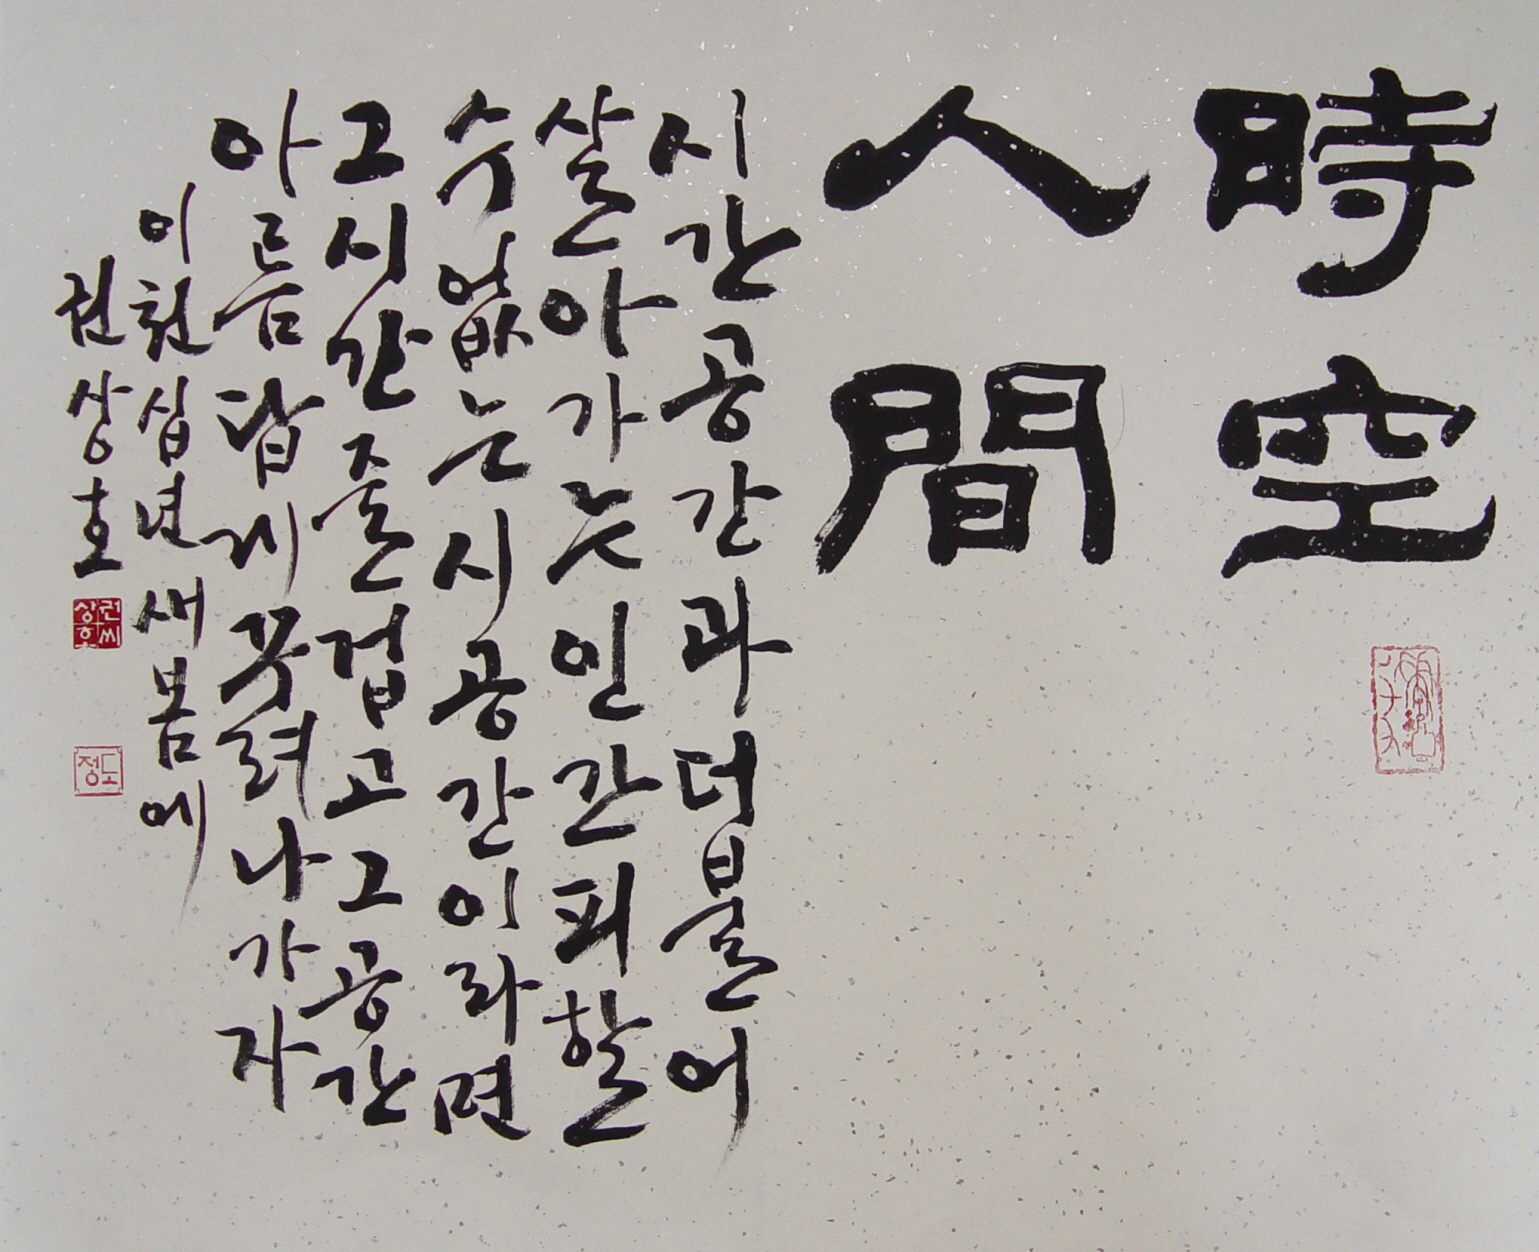 時空
人間
시간공간과더불어
살아가는인간피할
수없는시공간이라면
그시간즐겁고그공간
아름답게꾸려나가자
이천십년새봄에
권상호
권씨
상호
도정